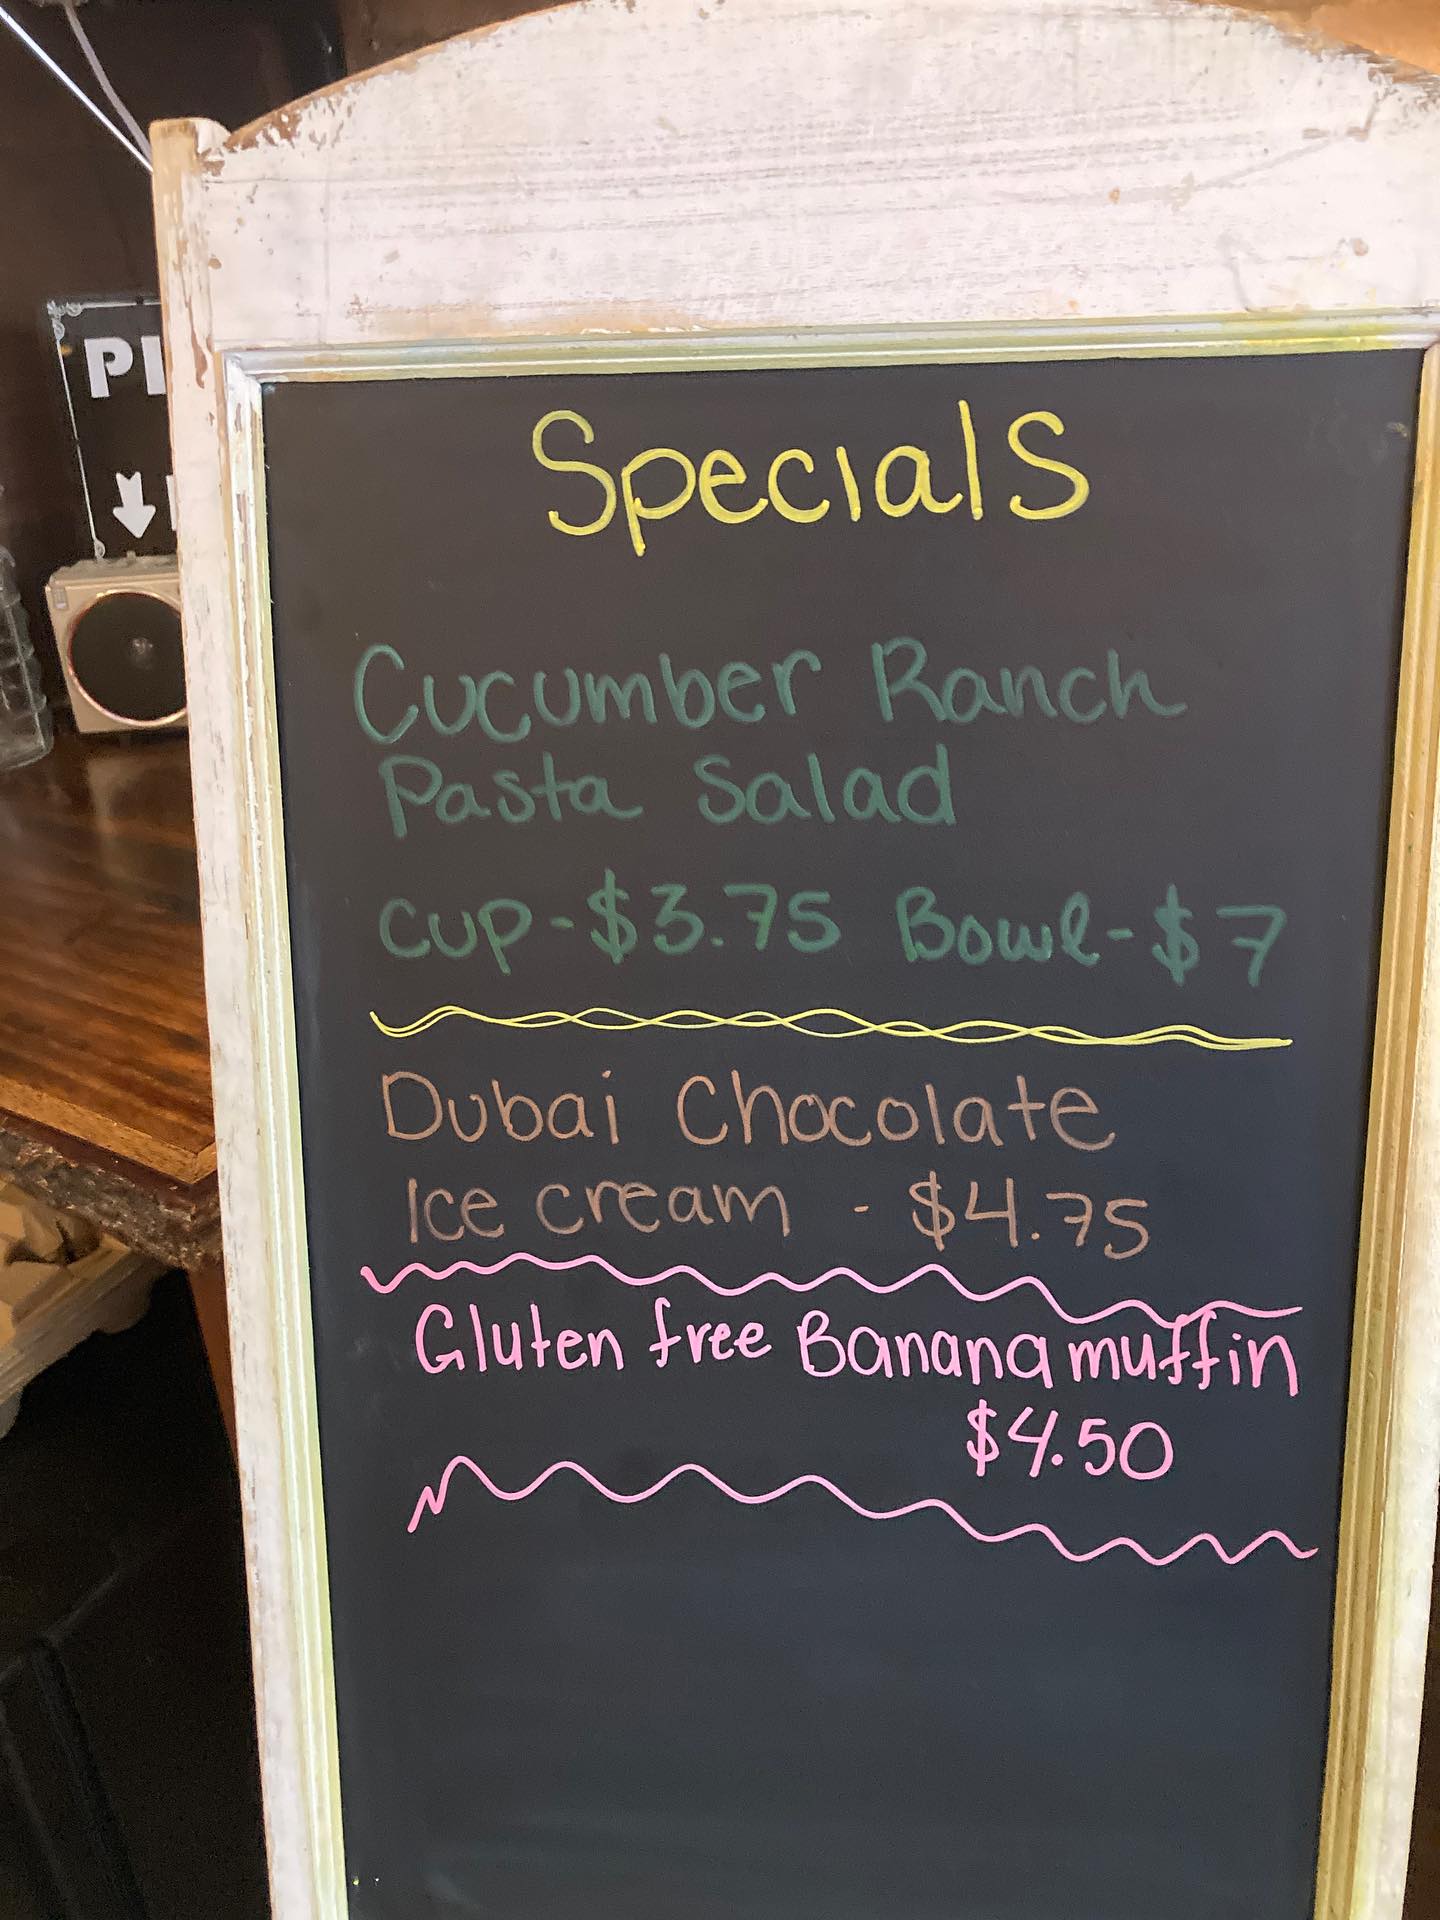 Specials
Cucumber Ranch
Pasta Salad
Cup-$3.75 Bowl-$7
Dubai Chocolate
Ice cream - $4.75
Gluten free Banana muffin
$4.50